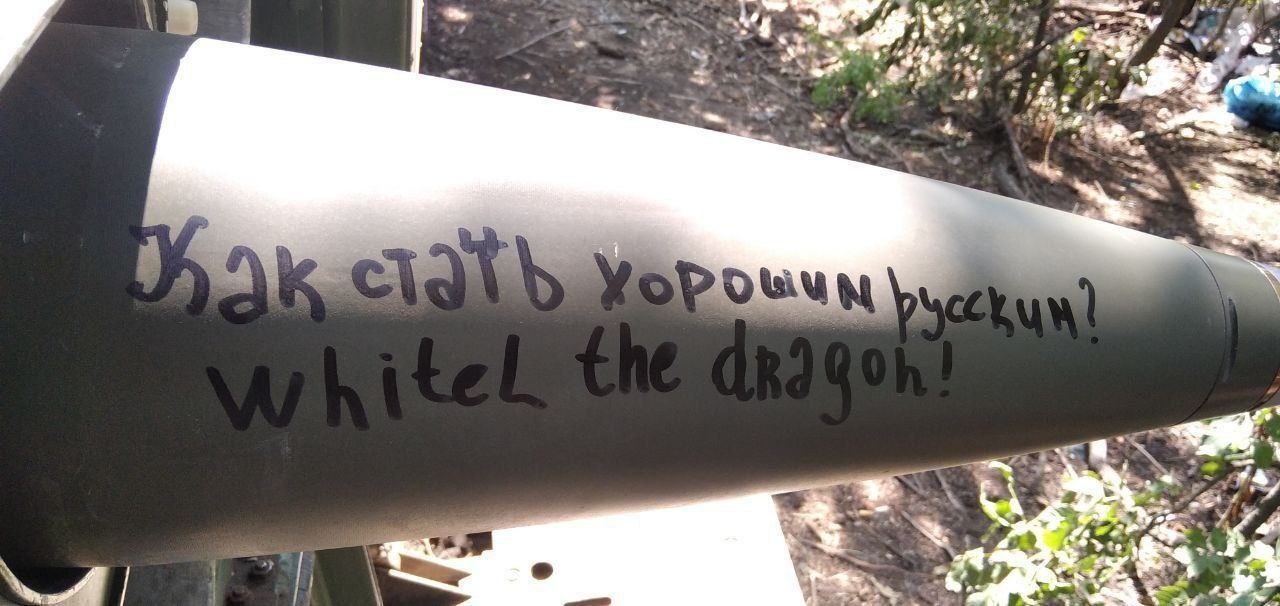 Как стать хорошим русским?
Whitel the dragon!